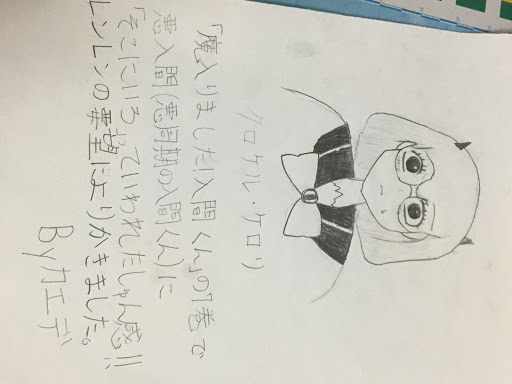 クロケル・ケロリ
「魔入りました!入間くん」の7巻で
悪入間(悪周期の入間くん)に
「そこにいろ」ていわれたしゅん感!!
レンレンの要望によりかきました。
Byカエデ